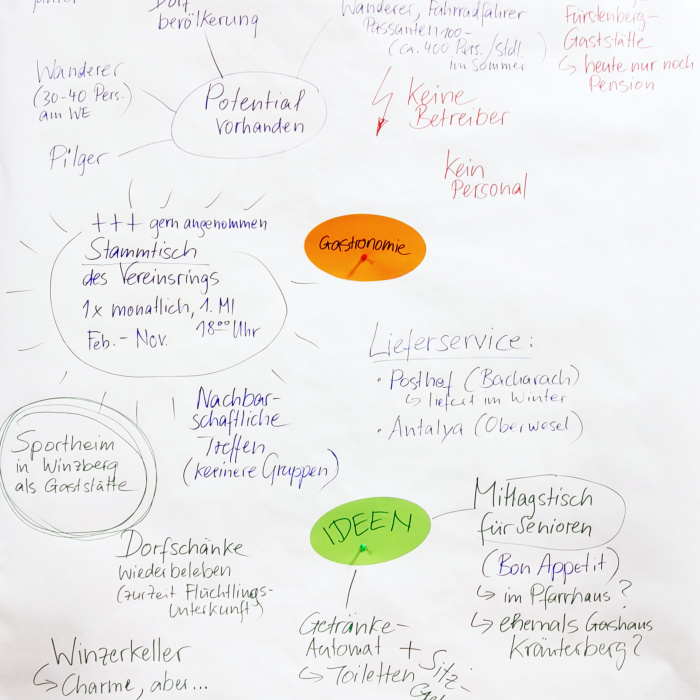 Dorf
bevölkerung
Wanderer, Fahrradfahrer
Passanten 100-
(ca. 400 Pers./Std!
im Sommer
Fürstenberg-
Gaststätte
↳ heute nur noch
Pension
Wanderer
(30-40 Pers.)
am WE
Potential
vorhanden
Keine
Betreiber
Pilger
Kein
Personal
+++ gern angenommen
Stammtisch
des Vereinsrings
1x monatlich, 1. MI
Feb. - Nov. 18⁰⁰ Uhr
Gastronomie
Lieferservice:
• Posthof (Bacharach)
↳ liefert im Winter
• Antalya (Oberwesel)
Nachbar-
schaftliche
Treffen
(kleinere Gruppen)
Sportheim
in Winzberg
als Gaststätte
IDEEN
Mittagstisch
für Senioren
(Bon Appetit)
↳ im Pfarrhaus?
↳ ehemals Gasthaus
Kräuterberg?
Dorfschänke
wiederbeleben
(zurzeit Flüchtlings-
unterkunft)
Getränke-
Automat +
↳ Toiletten
Sitz-
Winzerkeller
↳ Charme, aber...